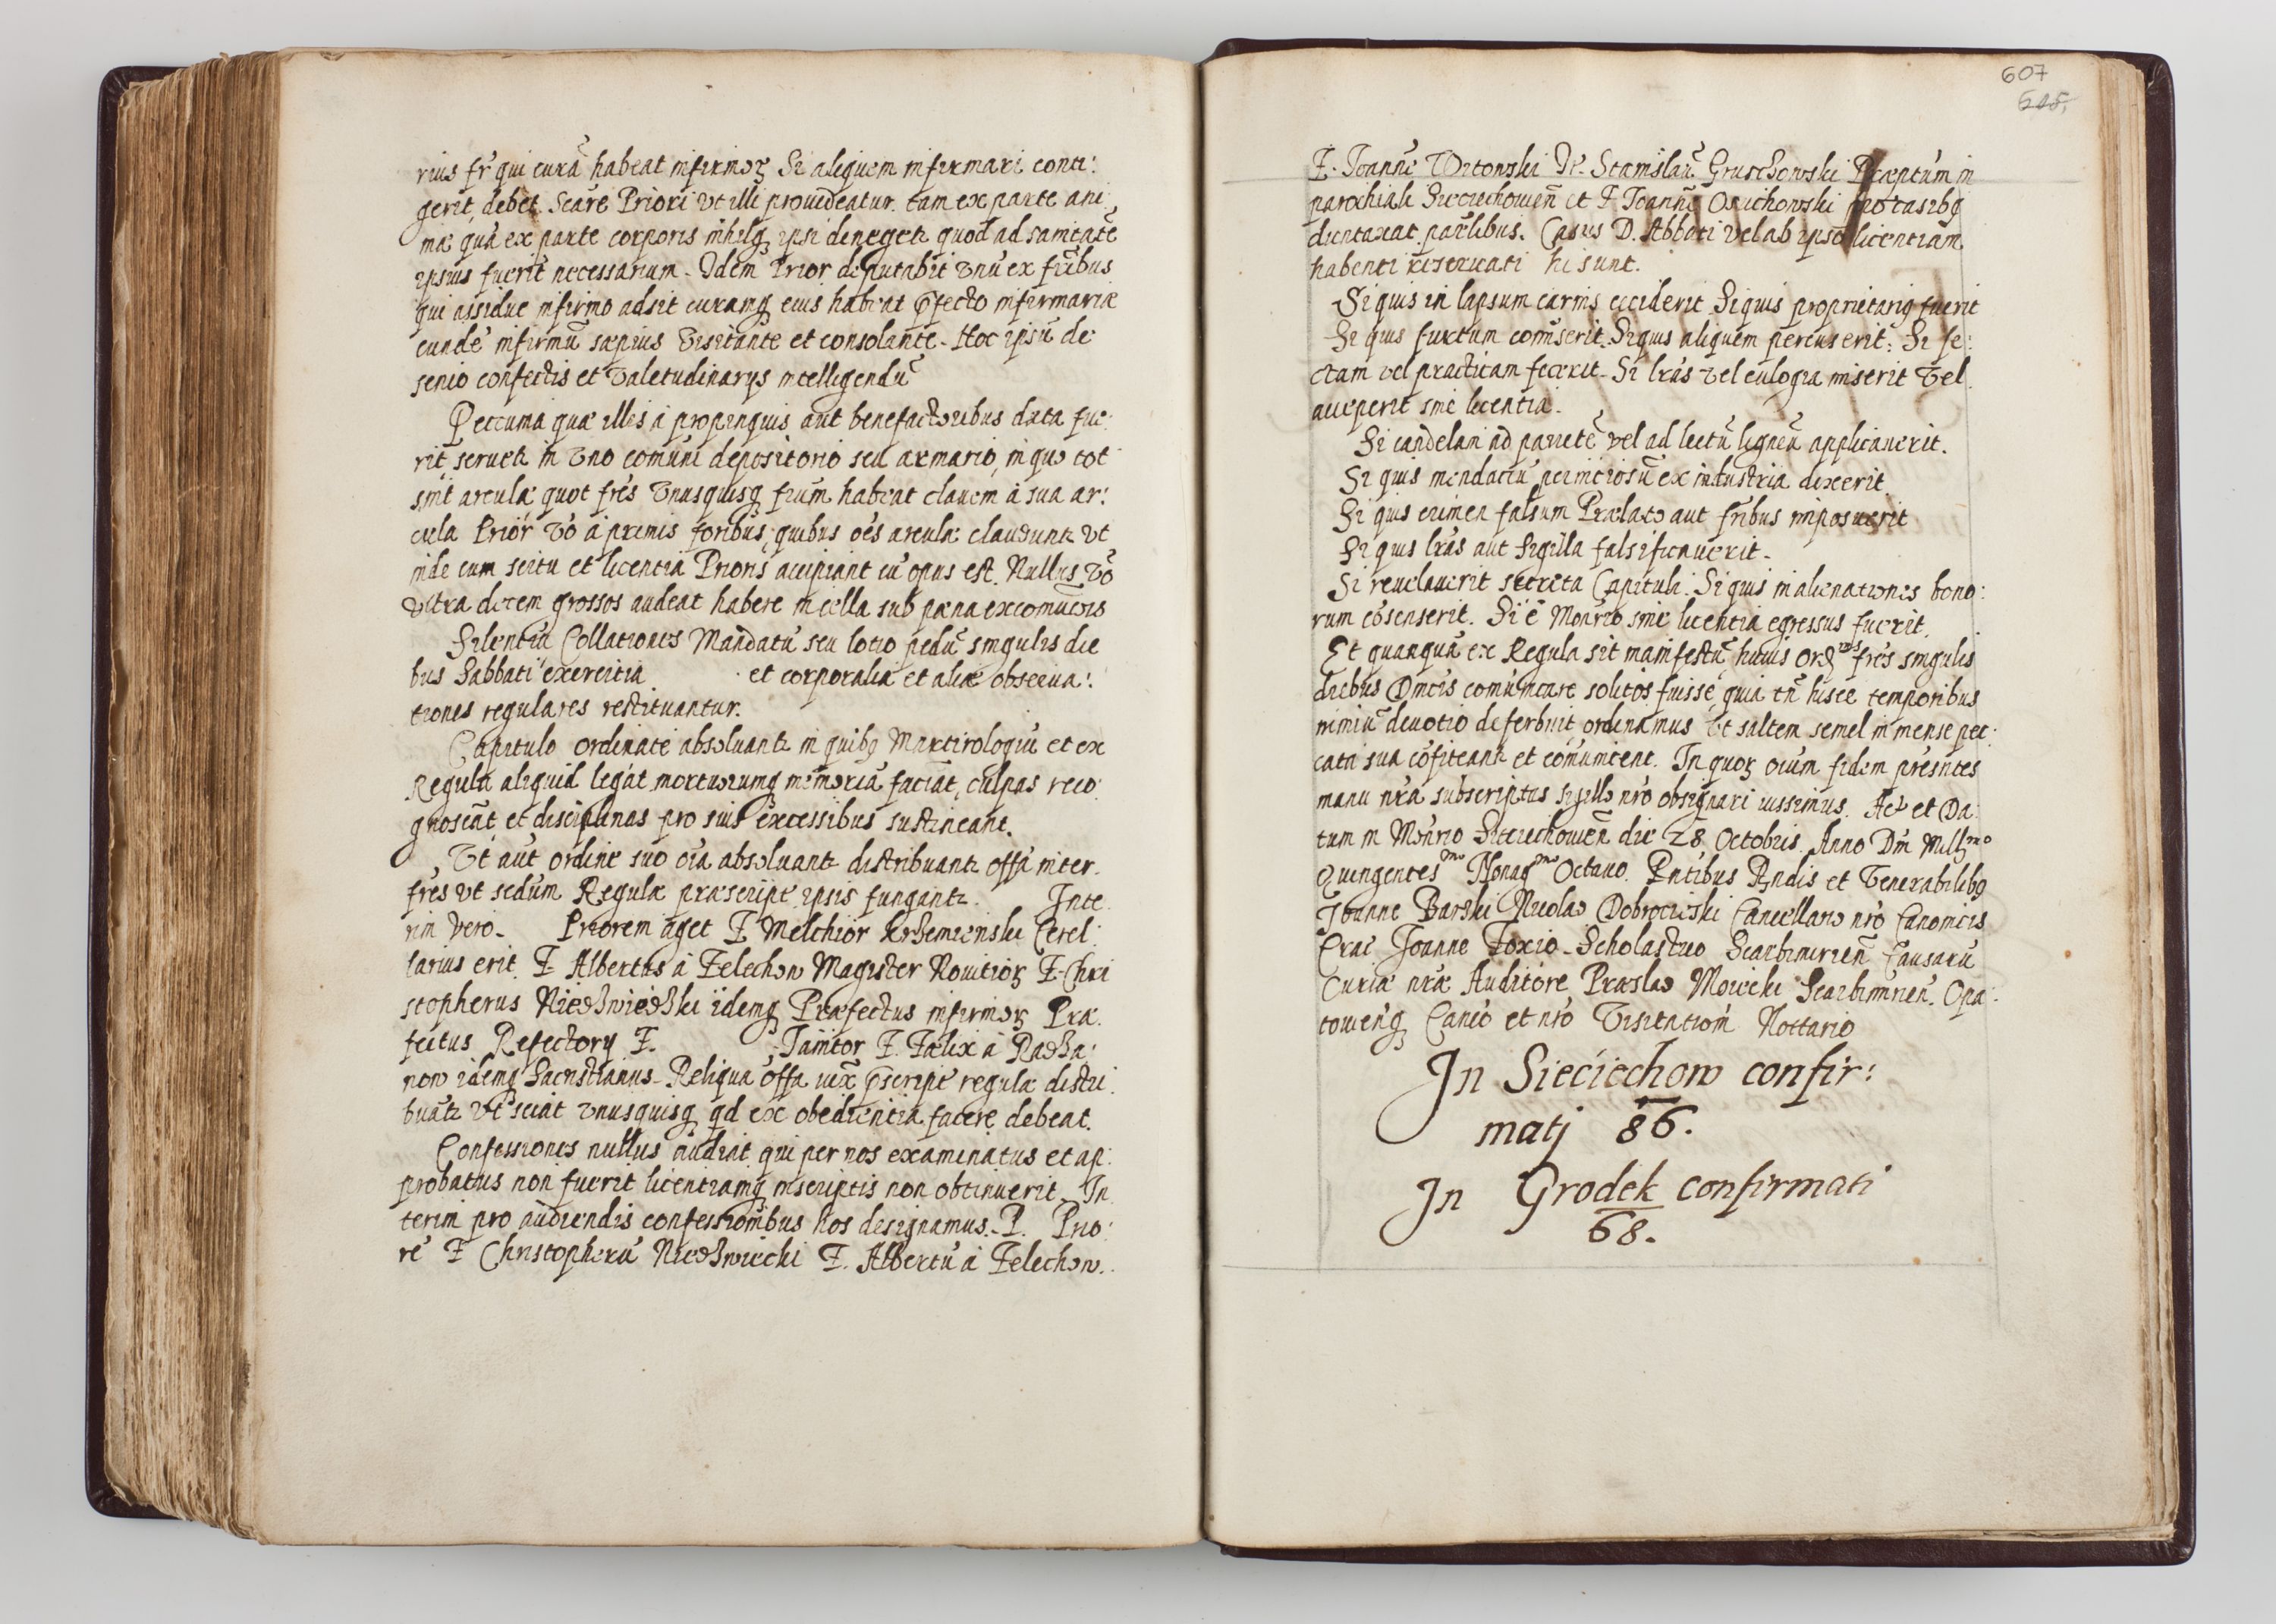 rius fr̃ qui curã habeat infirmoꝝ Si aliquem infirmari conti:
gerit, debet Scãre Priori vt illi prouideatur tam ex parte ani
mæ quã ex parte corporis nihilq́ ipsi denegetr quod ad sanitatẽ
ipsius fuerit necessarium. Idem Prior deputabit vnũ ex fr̃ibus
qui assidue infirmo adsit curamq́ eius habeat p̃fecto infirmariæ
eundẽ infirmũ sæpius visitante et consolante. Hoc ipsũ de
senio confectis et valetudinarys intelligendũ
Peccunia quæ illis à propinquis aut benefactoribus data fue:
rit seruetr in vno comuni depositorio seu armario, in quo tot
sint arculæ quot fr̃es vnusquisq́ frũm habeat clauem à sua ar:
cula Prior vò à primis foribus, quibus oẽs arculæ claudunt vt
inde cum scitu et licentia Prioris accipiant cũ opus est. Nullus vò
vltra decem grossos audeat habere in cella sub pæna excomuẽois
Silentiũ Collationes Mandatũ seu lotio pedũ singulis die
bus Sabbati exercitia et corporalia et aliæ obserua:
tiones regulares restituantur.
Capitulo ordinatè absoluantr in quibꝰ Martirologiũ et ex
Regula aliquid legãt mortuorumq́ memoriã faciãt, culpas reco:
gnoscãt et disciplinas pro suis excessibus sustineant.
Vt aũt ordine suo oĩa absoluantr distribuantr offa inter
fr̃es vt sedum Regulæ præscript̃ ipsis fungantr. Inte
rim vero. Priorem aget F Melchior Krzemienski Cerel:
larius erit F Albertus à Zelechow Magister Nouitioꝝ F. Chri
stopherus Niedzwiedzki idemq́ Præfectus infirmoꝝ Præ
fectus Refectory F. Ianitor F. Fælix à Radza:
now idemq́ Sacristianus. Reliqua offa iux̃ p̃script̃ regulæ distri
buãtr vt sciãt vnusquisq́ qd ex obedientia facere debeat.
Confessiones nullus audiat qui per nos examinatus et ap:
probatus non fuerit licentiamq́ inscriptis non obtinuerit. In
terim pro audiendis confessionibus hos designamus. P. Prio:
rẽ F Christopherũ Niedzwiecki F. Albertũ à Zelechow.
607
F. Ioannẽ Witowski Stanislaũ Gruschowski Præptum in
parochiali Sieciechouieñ et F Ioannẽ Osuchowski pro casibꝰ
duntaxat parlibus. Casus D. Abbati vel ab ipso licentiam
habenti reseruati hi sunt.
Si quis in lapsum carnis ceciderit Si quis proprietariꝰ fuerit
Si quis furtum comiserit. Si quis aliquem percuserit: Si se:
ctam vel practicam fecerit. Si lr̃as vel eulogia miserit vel
acceperit sine licentia.
Si candelam ad parietẽ vel ad lectũ ligneũ applicauerit.
Si quis mendaciũ perniciosũ ex industria dixerit
Si quis crimen falsum Prælato aut fr̃ibus imposuerit
Si quis lr̃as aut sigilla falsificauerit.
Si reuelauerit secreta Capituli. Si quis in alienationes bono:
rum cõsenserit. Si è Monrio sine licentia egressus fuerit.
Et quanquã ex Regula sit manifestũ huius Ordis fr̃es singulis
diebus Dmcis comunicare solitos fuisse, quia tñ hisce temporibus
nimiũ deuotio deferbuit ordinamus vt saltem semel in mense pec:
cata sua cõfiteantr et comunicent. In quoꝝ oium fidem presntes
manu nr̃a subscriptas sigillo nr̃o obsignari iussimus. Act̃ et Da:
tum in Monrio Sieciechouieñ die 28 Octobris Anno Dm̃ Millmo
Quingentesmo Nonagmo Octauo. Pntibus Rndis et Venerabilibꝰ
Ioanne Barski Nicolao Dobrocieski Cancellario nr̃o Canonicis
Crac̃ Ioanne Foxio Scholastico Scarbimirieñ Causarũ
Curiæ nr̃æ Auditore Præslao Moiecki Scarbimirieñ. Opa:
touieñq́ Canco et nr̃o Visitationĩ Nottario
In Sieciechow confir:
matj 86.
In Grodek confirmati
68.